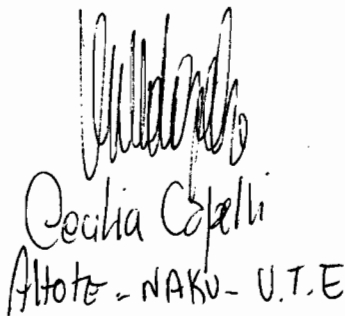 Cecilia Copelli
Altote - NAKU - U.T.E